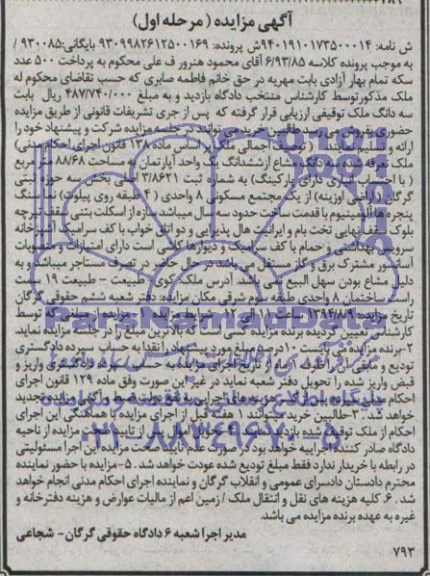 آگهی مزایده ( مرحله اول)
ش نامه: ۹۴۰۱۹۱۰۱۷۳۵۰۰۰۱۴ ش پرونده: ۹۳۰۹۹۸۲۶۱۲۵۰۰۱۶۹ بایگانی:۹۳۰۰۸۵ /
به موجب پرونده کلاسه ۶/۹۳/۸۵ آقای محمود هنرور ف علی محکوم به پرداخت ۵۰۰ عدد
سکه تمام بهار آزادی بابت مهریه در حق خانم فاطمه صابری که حسب تقاضای محکوم له
ملک مذکور توسط کارشناس منتخب دادگاه بازدید و به مبلغ ۴۸۷/۷۴۰/۰۰۰ ریال بابت
سه دانگ ملک توقیفی ارزیابی قرار گرفته که پس از جری تشریفات قانونی از طریق مزایده
حضوری بفروش می رسد طالبین خرید می توانند در جلسه مزایده شرکت و پیشنهاد خود را
ارائه و تسلیم نمایند. ( توصیف اجمالی ملک بر اساس ماده ۱۳۸ قانون اجرای احکام مدنی)
ملک تعرفه شده سه دانگ مشاع از ششدانگ یک واحد آپارتمان به مساحت ۸۸/۶۸ متر مربع
( با احتساب انباری دارای پارکینگ) به شماره ثبت ۳/۸۶۲۱ اصلی بخش سه حوزه ثبتی
گرگان (اراضی اوزینه) از یک مجتمع مسکونی ۸ واحدی ( ۴ طبقه روی پیلوت) نما سنگ
پنجره ها آلومینیوم با قدمت ساخت حدود سال میباشد سازه از اسکلت بتنی سقف تیرچه
بلوک سقف نهایی تخت بام و ایرانیت هال پذیرایی و دو اتاق خواب با کف سرامیک آشپزخانه
سرویس بهداشتی و حمام با کف سرامیک و دیوارها کاشی است دارای امتیازات و منصوبات
آسانسور مشترک برق و گاز مستقل می باشد در حال حاضر در تصرف مستاجر میباشد و به
دلیل مشاع بودن سهل البیع نمی باشد. آدرس ملک: کوی طبیعت – طبیعت ۱۹ سمت
راست ساختمان ۸ واحدی طبقه سوم شرقی مکان مزایده: دفتر شعبه ششم حقوقی گرگان
تاریخ مزایده ۱۳۹۴/۸/۹ ساعت ۱۱ الی ۱۲ شرایط مزایده: ۱- مزایده از مبلغی که توسط
کارشناس تعیین گردیده برنده مزایده کسی است که بالاترین مبلغ را در جلسه مزایده نماید.
۲-برنده مزایده می بایست ۱۰ درصد مبلغ مورد پیشنهاد را نقدا به حساب سپرده دادگستری
تودیع و مابقی را ظرف ۱ ماه از تاریخ اجرای مزایده به حساب سپرده دادگستری واریز و
قبض واریز شده را تحویل دفتر شعبه نماید در غیر این صورت وفق ماده ۱۲۹ قانون اجرای
احکام مدنی سپرده پس از کسر هزینه های اجرایی به نفع دولت ضبط و آگهی مزایده تجدید
خواهد شد. ۳-طالبین خرید می توانند ۱ هفته قبل از اجرای مزایده با هماهنگی این اجرای
احکام از ملک توقیف شده بازدید نمایند. ۴-تحویل مال پس از تایید صحت مزایده از ناحیه
دادگاه صادر کننده اجراییه خواهد بود در صورت عدم تایید صحت مزایده این اجرا مسئولیتی
در رابطه با خریدار ندارد فقط مبلغ تودیع شده عودت خواهد شد. ۵-مزایده با حضور نماینده
محترم دادستان دادسرای عمومی و انقلاب گرگان و نماینده اجرای احکام مدنی انجام خواهد
شد . ۶. کلیه هزینه های نقل و انتقال ملک / زمین اعم از مالیات عوارض و هزینه دفترخانه و
غیره به عهده برنده مزایده می باشد.
مدیر اجرا شعبه ۶ دادگاه حقوقی گرگان – شجاعی
۷۹۳
ParsNamadData
۰۲۱-۸۸۳۴۹۶۷۰-۵